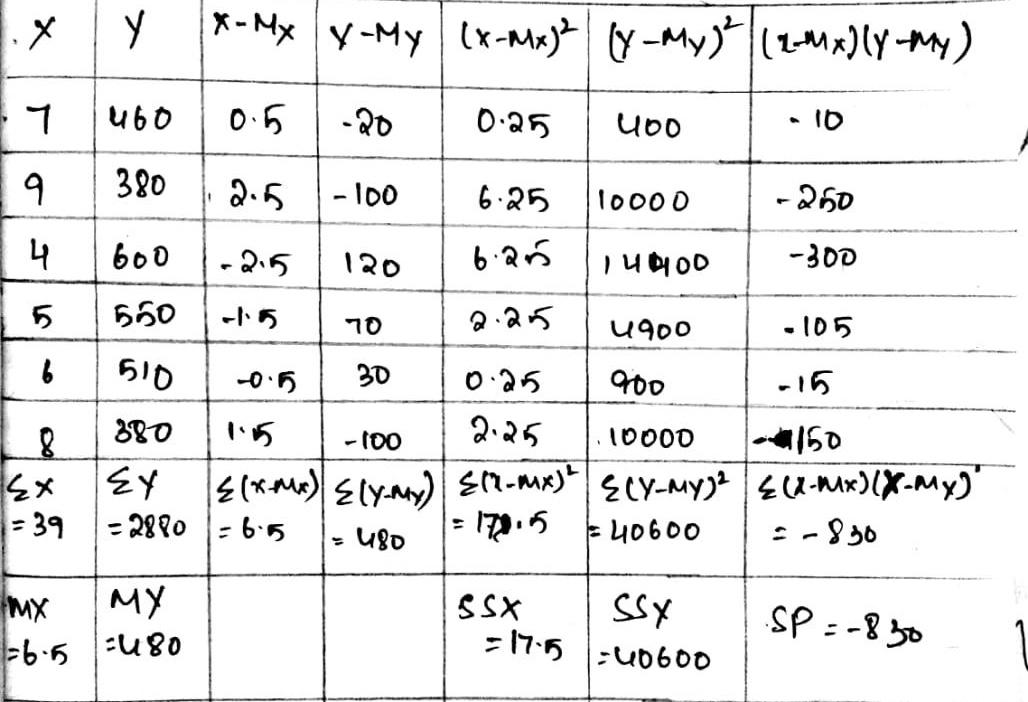 X Y X-Mx Y-My (x-Mx)² (Y-My)² (x-Mx)(Y-My)
7 460 0.5 -20 0.25 400 -10
9 380 2.5 -100 6.25 10000 -250
4 600 -2.5 120 6.25 14400 -300
5 550 -1.5 70 2.25 4900 -105
6 510 -0.5 30 0.25 900 -15
8 380 1.5 -100 2.25 10000 -150
Σx ΣY Σ(x-Mx) Σ(Y-My) Σ(x-Mx)² Σ(Y-MY)² Σ(x-Mx)(Y-My)
=39 =2880 =6.5 =480 =17.5 =40600 =-830
MX MY SSX SSY SP=-830
=6.5 =480 =17.5 =40600